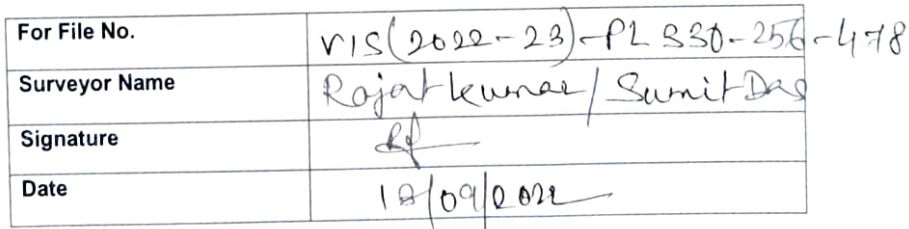 For File No. VIS(2022-23)-PL330-256-478
Surveyor Name Rajat Kumar/Sumit Das
Signature
Date 18/09/2022